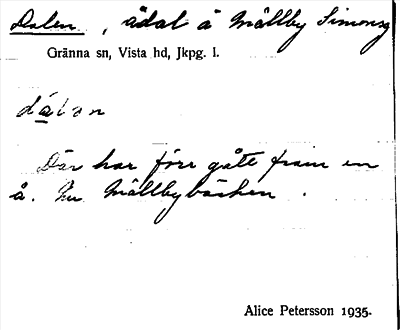 Dalen, ådal å Målby Simonsg
Gränna sn, Vista hd, Jkpg. l.
dɑ̀lən
Där har förr gått fram en
å. Nu Målbybäcken.
Alice Petersson 1935.